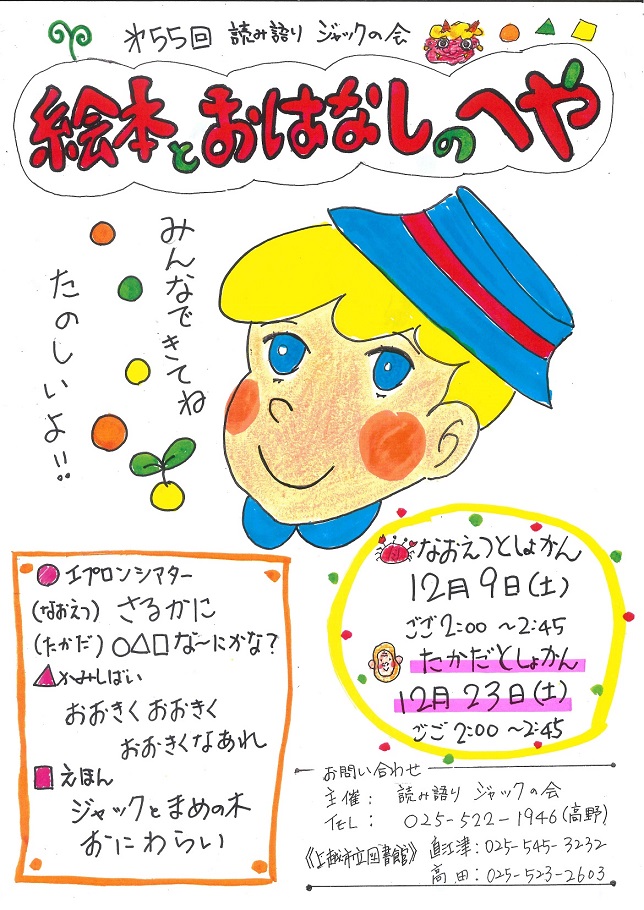 第55回 読み語り ジャックの会
絵本とおはなしのへや
みんなできてね
たのしいよ!!
エプロンシアター
(なおえつ) さるかに
(たかだ) ○△□ な～にかな?
かみしばい
おおきくおおきく
おおきくなあれ
えほん
ジャックとまめの木
おにわらい
なおえつとしょかん
12月9日(土)
ごご2:00～2:45
たかだとしょかん
12月23日(土)
ごご2:00～2:45
お問い合わせ
主催: 読み語り ジャックの会
TEL: 025-522-1946(高野)
《上越市立図書館》 直江津:025-545-3232
高田:025-523-2603